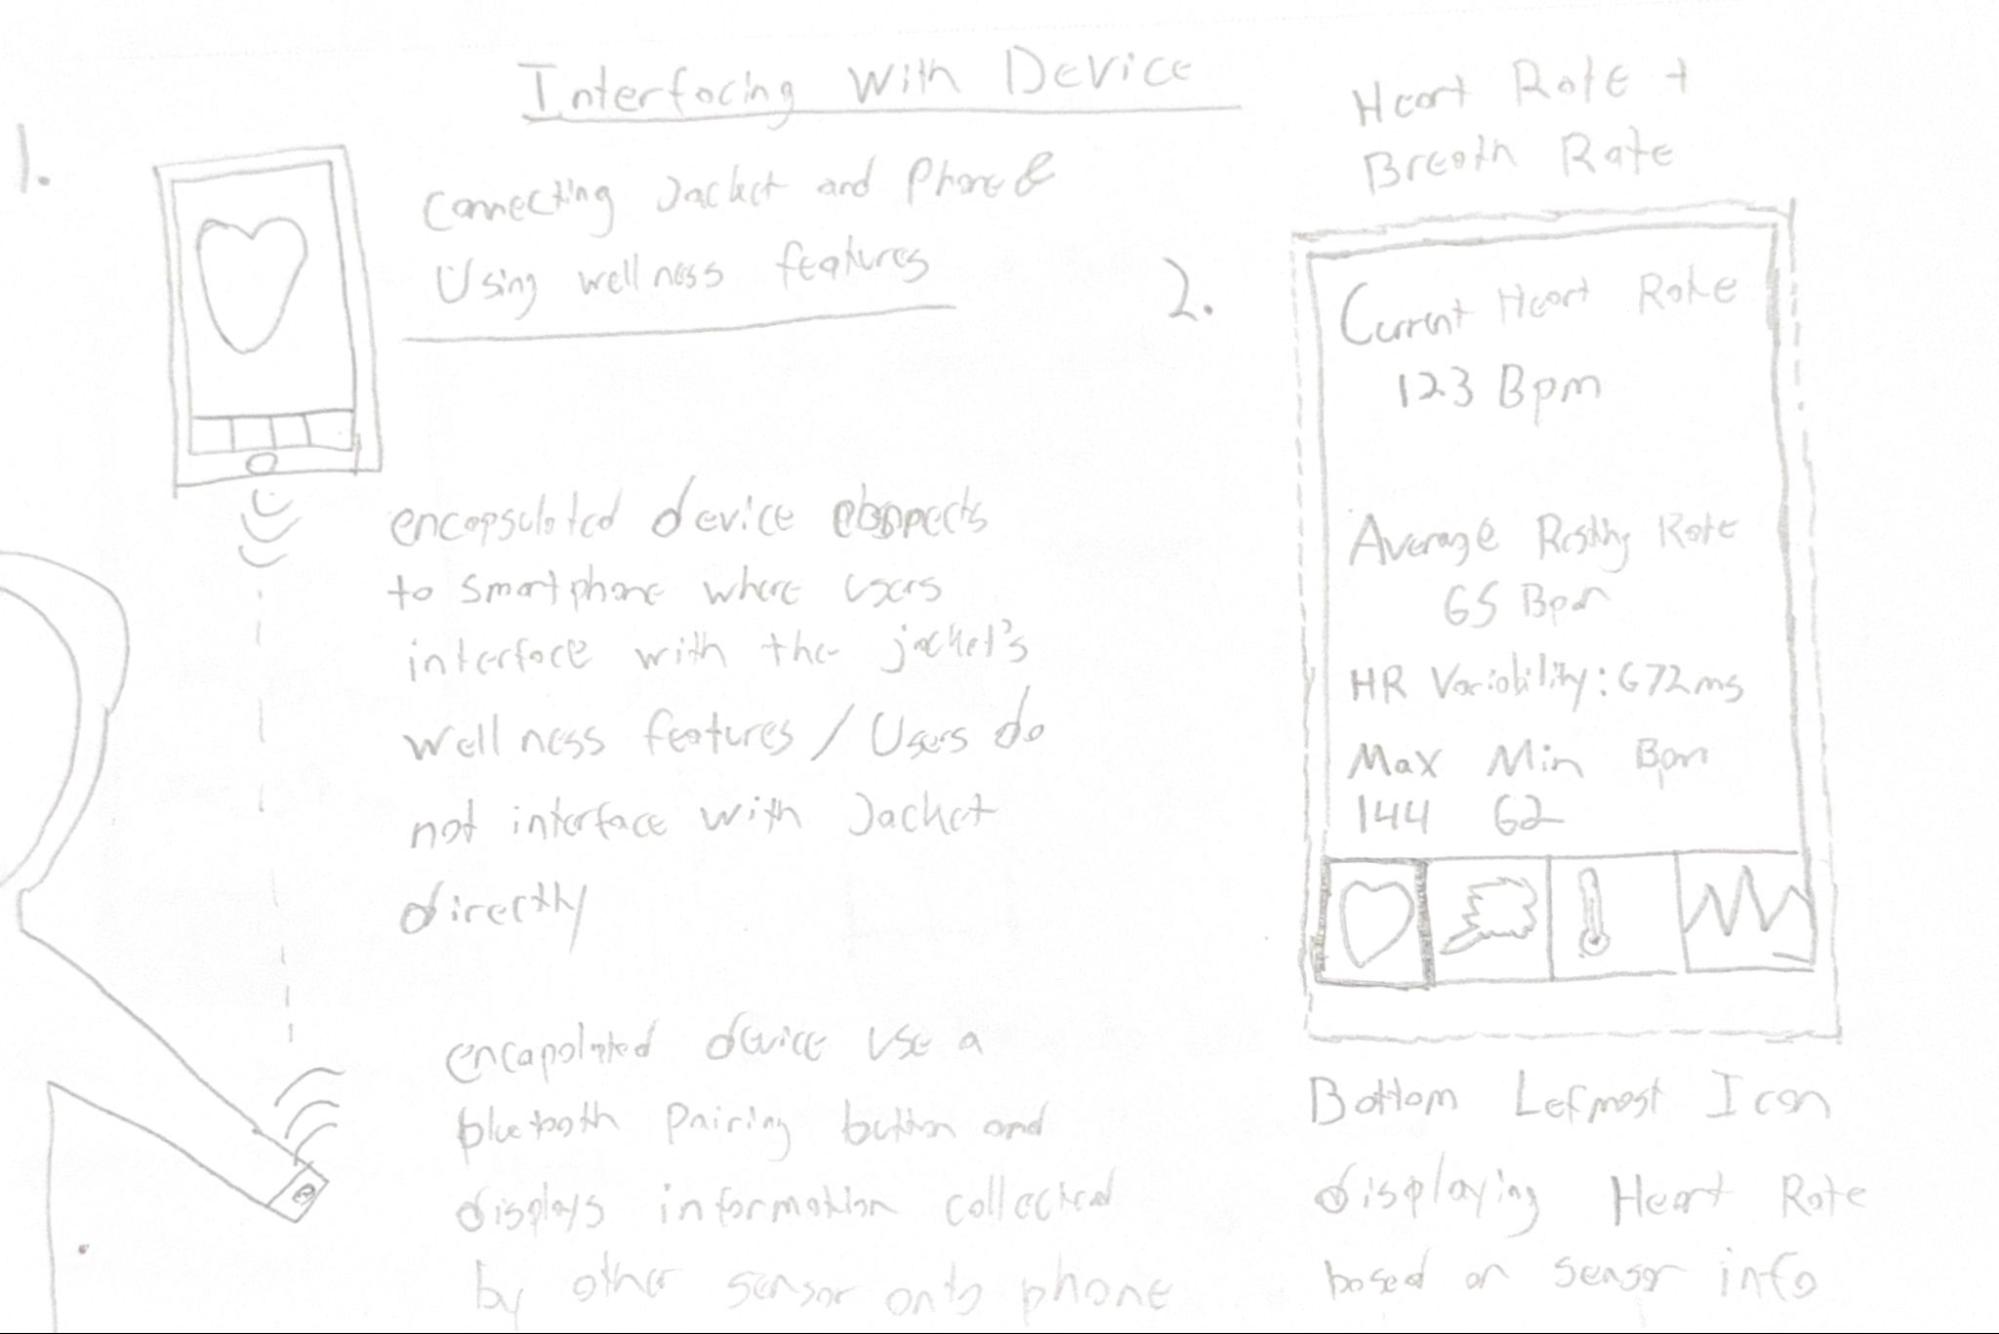 Interfacing With Device
1.
Connecting Jacket and Phone &
Using wellness features
encapsulated device connects
to smartphone where users
interface with the jacket's
wellness features / Users do
not interface with Jacket
directly
device use a
bluetooth Pairing button and
displays information collected
by other sensor onto phone
Heart Rate +
Breath Rate
2.
Current Heart Rate
123 Bpm
Average Resting Rate
65 Bpm
HR Variability: 672ms
Max Min Bpm
144 62
Bottom Lefmost Icon
displaying Heart Rate
based on sensor info